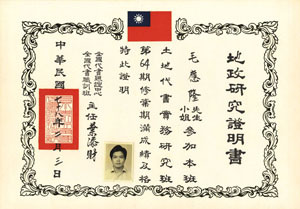 地政研究證明書
毛應隆先生小姐參加本班
土地代書實務研究班
第64期修業期滿成績及格
特此證明
全國代書職訓班
主任 葉添財
中華民國七十八年二月三日